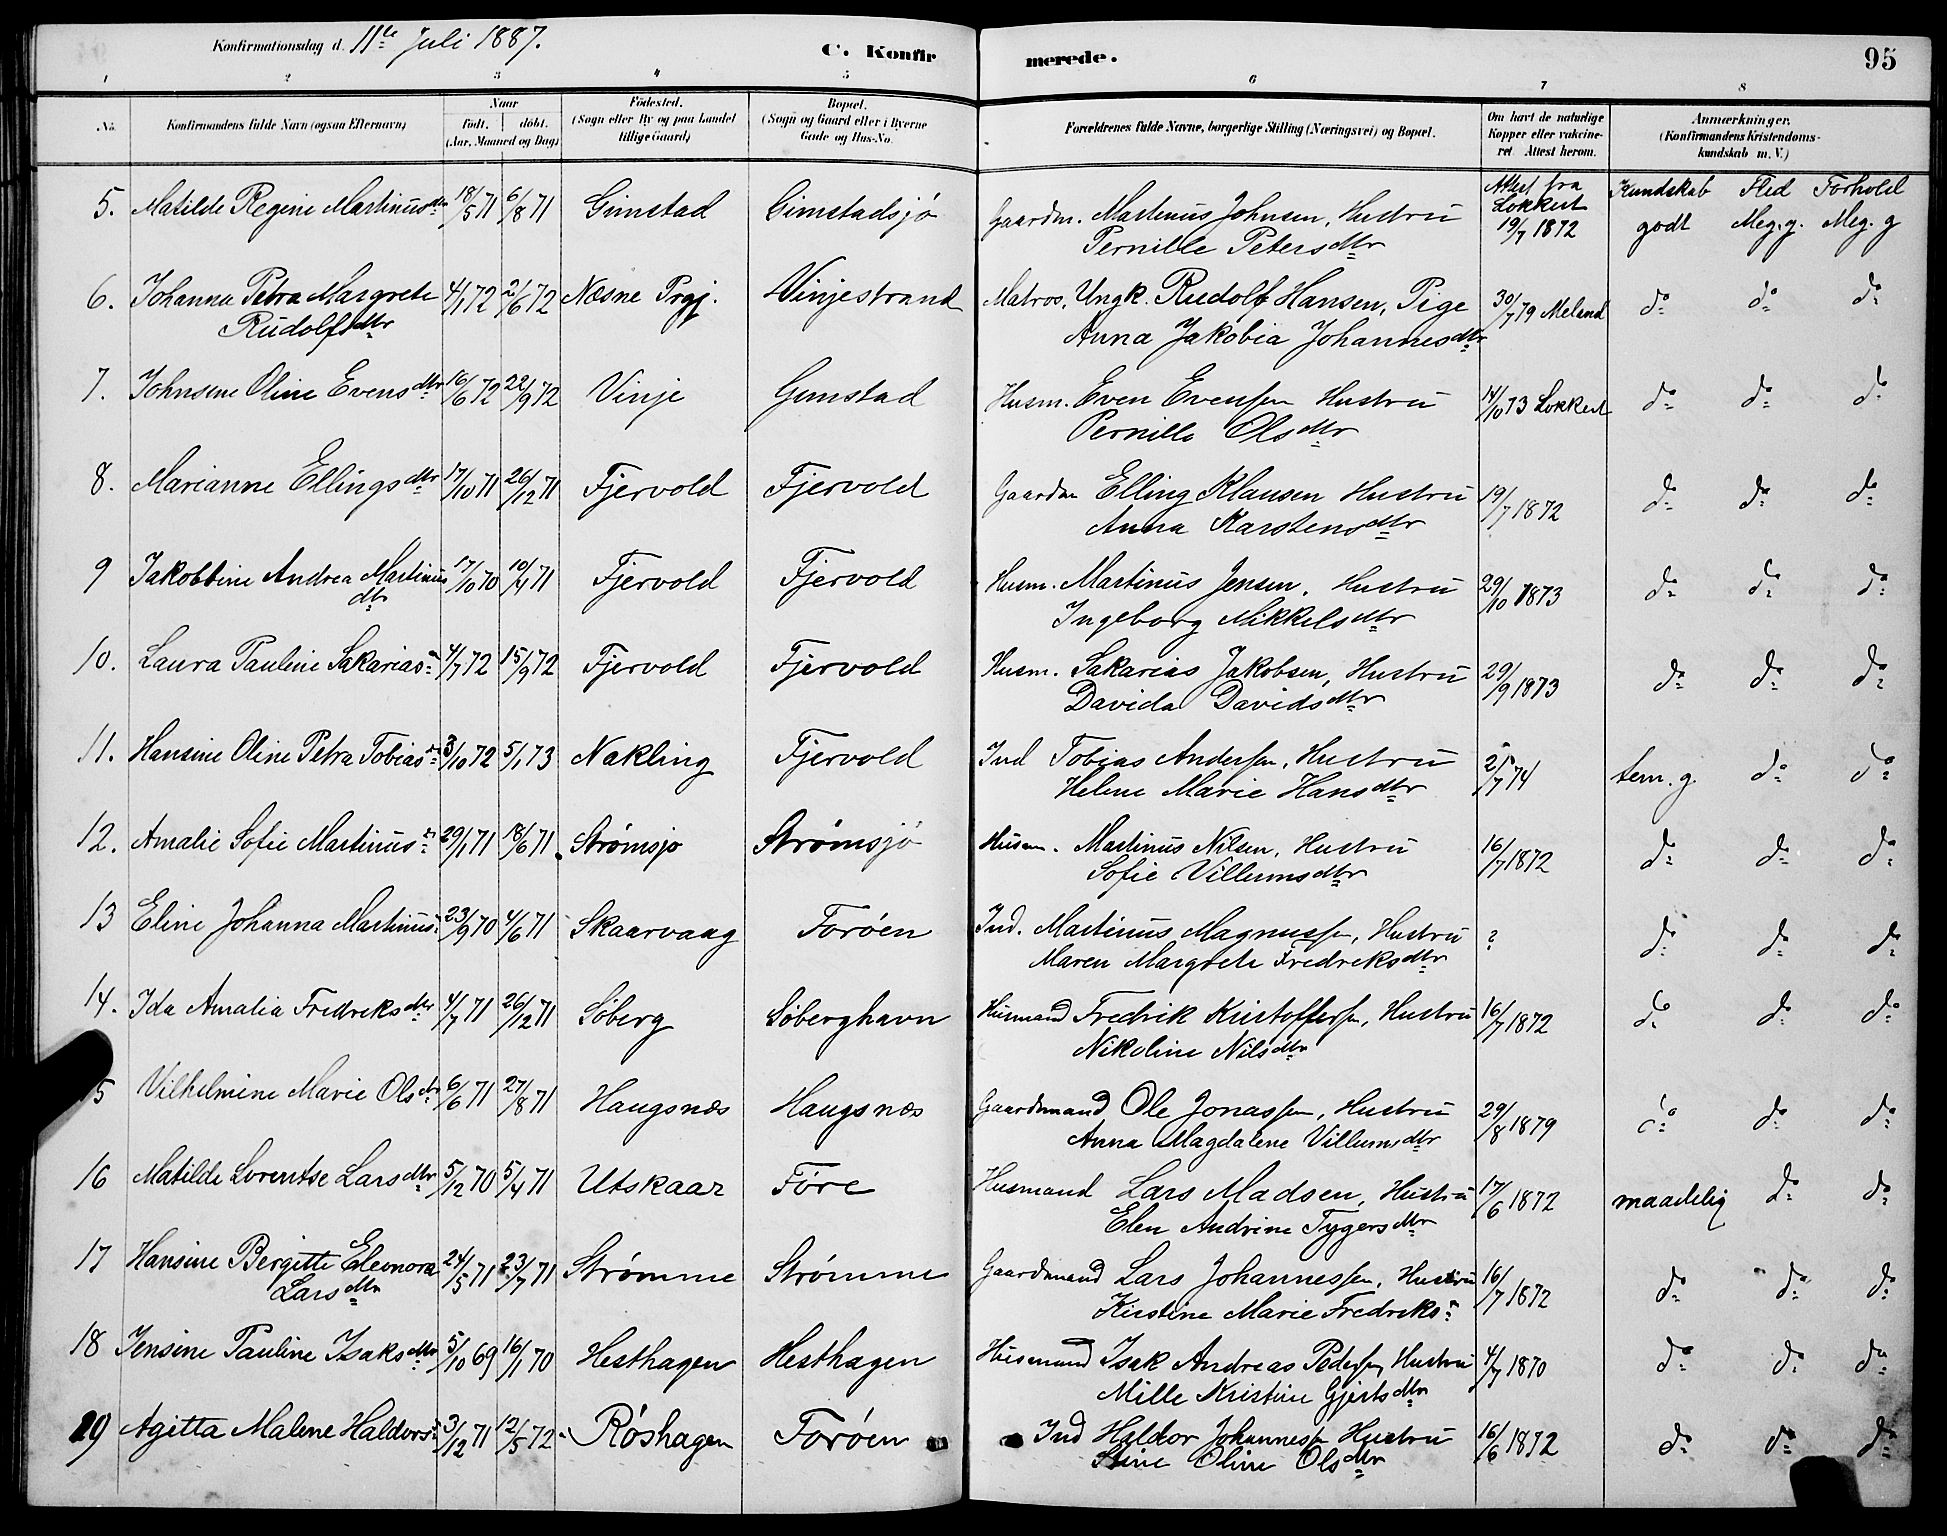 Konfirmationsdag d. 11te Juli 1887.
C. Konfirmerede.
95
1 2 3 4 5 6 7 8
No.
Konfirmandens fulde Navn (ogsaa Efternavn)
Naar
født. døbt.
(Aar, Maaned og Dag)
Fødested.
(Sogn eller By og paa Landet
tillige Gaard)
Bopæl.
(Sogn og Gaard eller i Byerne
Gade og Hus-No.
Forældrenes fulde Navne, borgerlige Stilling (Næringsvei) og Bopæl.
Om havt de naturlige
Kopper eller vakcine-
ret. Attest herom.
Anmærkninger.
(Konfirmandens Kristendoms-
kundskab m. V.)
Kundskab Flid Forhold
5. Matilde Regine Martinusdtr 18/5 71 6/8 71 Gimstad Gimstadsjö Gaardm. Martinus Johnsen, Hustru Attest fra Lokkert 19/7 1872 godt Meg. g. Meg. g
Pernille Petersdtr
6. Johanna Petra Margrete 4/1 72 2/6 72 Næsne Prgj. Vinjestrand Matros, Ungk. Rudolf Hansen, Pige 30/7 79 Meland do do do
Rudolfsdtr Anna Jakobia Johannesdtr
7. Johnsene Oline Evensdtr 16/6 72 22/9 72 Vinje Gimstad Husm. Even Evensen Hustru 14/10 73 Lokkert do do do
Pernille Olsdtr
8. Marianne Ellingsdtr 17/10 71 26/12 71 Fjervold Fjervold Gaardm Elling Klausen Hustru 19/7 1872 do do do
Anna Karstensdtr
9 Jakobbine Andrea Martinus 17/10 70 10/4 71 Fjervold Fjervold Husm. Martinus Jensen, Hustru 29/10 1873 do do do
dtr Ingeborg Mikkelsdtr
10. Laura Pauline Sakarias 4/7 72 15/9 72 Fjervold Fjervold Husm. Sakarias Jakobsen, Hustru 29/9 1873 do do do
Davida Davidsdtr
11. Hansine Oline Petra Tobias 3/10 72 5/1 73 Nakling Fjervold Ind Tobias Andersen, Hustru 2/7 74 tem. g. do do
Helene Marie Hansdtr
12. Amalie Sofie Martinus 29/1 71 18/6 71 Strømsjo Strømsjö Husm. Martinus Nilsen, Hustru 16/7 1872 do do do
Sofie Villumsdtr
13 Eline Johanna Martinus 23/9 70 4/6 71 Skaarvaag Forøen Ind. Martinus Magnussen, Hustru ? do do do
Maren Margrete Fredreksdtr
14. Ida Amalia Fredreksdtr 4/7 71 26/12 71 Söberg Söberghavn Husmand Fredrik Kristoffersen, Hustru 16/7 1872 do do do
Nikoline Nilsdtr
15 Vilhelmine Marie Olsdtr 6/6 71 27/8 71 Haugsnæs Haugsnæs Gaardmand Ole Jonassen, Hustru 29/8 1879 do do do
Anna Magdalene Villumsdtr
16 Matilde Lorentse Larsdtr 5/12 70 5/4 71 Utskaar Före Husmand Lars Madsen, Hustru 17/6 1872 maadelig do do
Elen Andrine Tygersdtr
17 Hansine Bergitte Eleonora 24/5 71 23/7 71 Strømme Strømme Gaardmand Lars Johannessen, Hustru 16/7 1872 do do do
Larsdtr Kirstine Marie Fredreks
18 Jensine Pauline Isaksdtr 5/10 69 16/1 70 Hesthagen Hesthagen Husmand Isak Andreas Pedersen, Hustru 4/7 1870 do do do
Mille Kristine Gjertsdtr
19 Agitta Malene Haldors 3/12 71 12/5 72 Röshagen Forøen Ind Haldor Johannessen Hustru 16/6 1872 do do do
Stine Oline Olsdtr